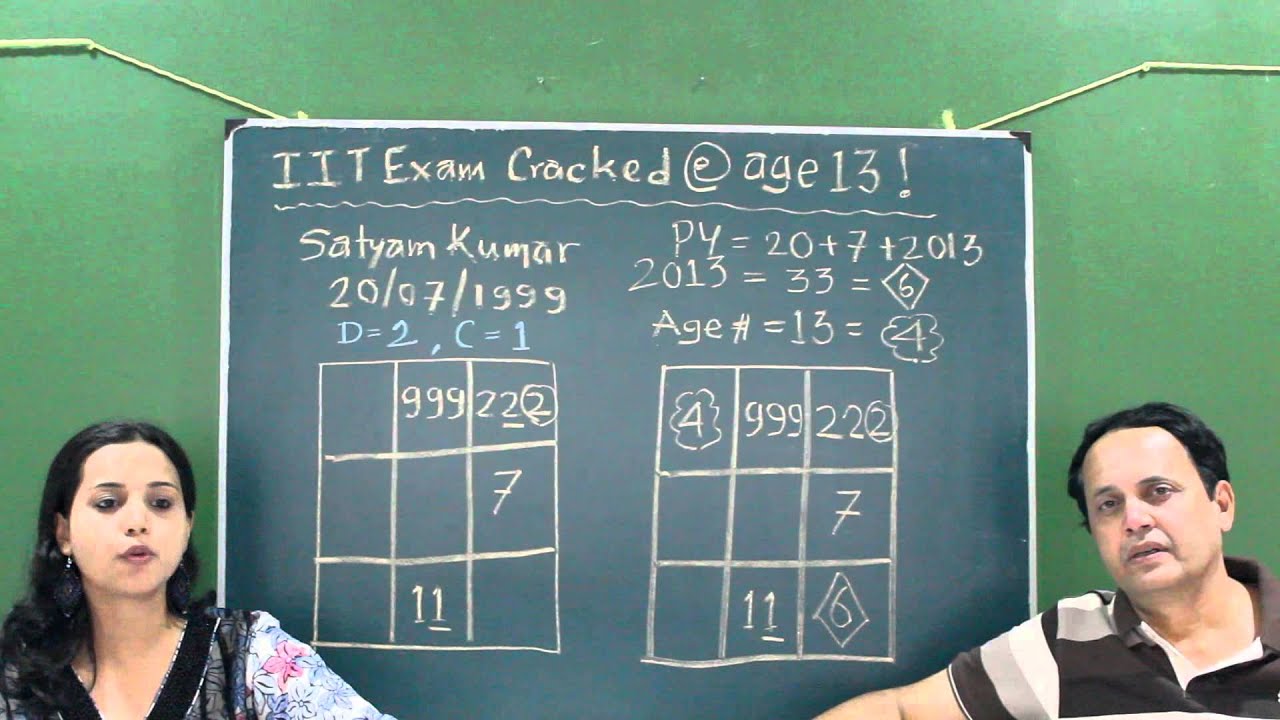 IIT Exam Cracked @ age 13!
Satyam Kumar
20/07/1999
D=2, C=1
999 222
7
11
PY = 20+7+2013
2013 = 33 = 6
Age # = 13 = 4
4 999 222
7
11 6